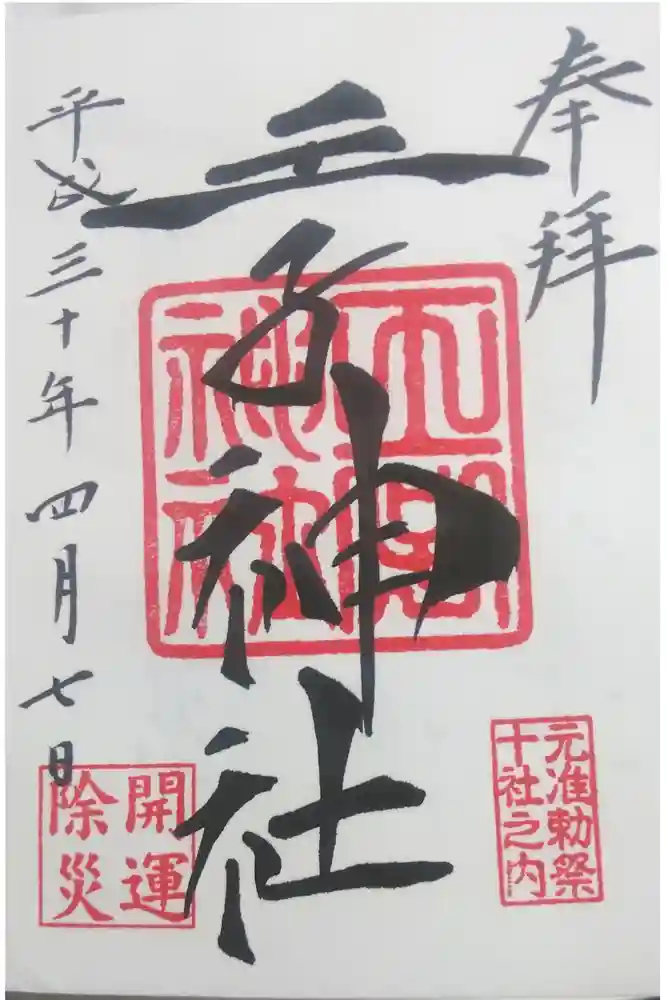 奉拝
王子神社
平成三十年四月七日
元准勅祭
十社之内
開運
除災